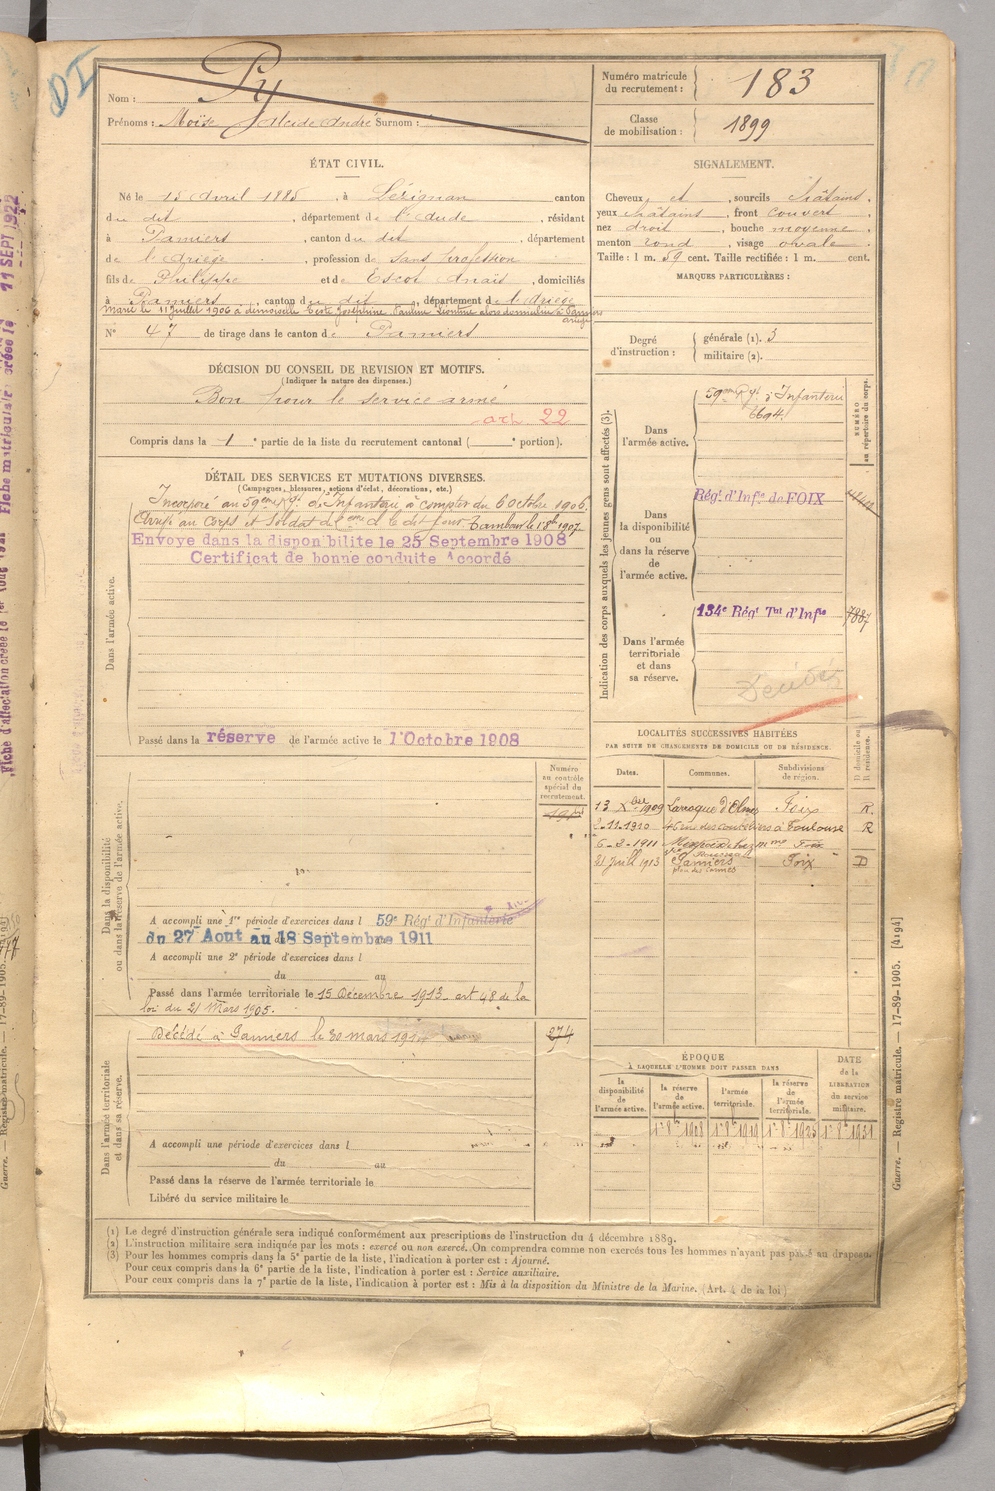 DI
Nom : Py
Prénoms : Moïse Alcide André Surnom :
Numéro matricule du recrutement : 183
Classe de mobilisation : 1899
ÉTAT CIVIL.
Né le 15 Avril 1885, à Lézignan canton
du dit, département de l'Aude, résidant
à Pamiers, canton du dit, département
de l'Ariège, profession de Sans profession
fils de Philippe et de Escot Anaïs, domiciliés
à Pamiers, canton du dit, département de l'Ariège
Marié le 11 juillet 1906 à demoiselle Joséphine Pauline Léontine alors domiciliée à Pamiers
Ariège
N° 47 de tirage dans le canton de Pamiers
SIGNALEMENT.
Cheveux et, sourcils châtains,
yeux châtains, front couvert,
nez droit, bouche moyenne,
menton rond, visage ovale.
Taille : 1 m. 59 cent. Taille rectifiée : 1 m. cent.
MARQUES PARTICULIÈRES :
Degré d'instruction : générale (1). 3
militaire (2).
DÉCISION DU CONSEIL DE REVISION ET MOTIFS.
(Indiquer la nature des dispenses.)
Bon pour le service armé
art 22
Compris dans la 1e partie de la liste du recrutement cantonal ( e portion).
DÉTAIL DES SERVICES ET MUTATIONS DIVERSES.
(Campagnes, blessures, actions d'éclat, décorations, etc.)
Dans l'armée active.
Incorporé au 59eme Rgt d'Infanterie à compter du 6 Octobre 1906.
Arrivé au Corps et Soldat de 2eme cl le dit jour. Tambour le 1 8bre 1907
Envoye dans la disponibilite le 25 Septembre 1908
Certificat de bonne conduite Accordé
Passé dans la réserve de l'armée active le 1 Octobre 1908
Indication des corps auxquels les jeunes gens sont affectés (3).
NUMÉRO au répertoire du corps.
Dans l'armée active.
59eme Rgt d'Infanterie
6694
Dans la disponibilité ou dans la réserve de l'armée active.
Régt d'Infie de FOIX
Dans l'armée territoriale et dans sa réserve.
134e Régt Tal d'Infie 7887
Décédé
LOCALITÉS SUCCESSIVES HABITÉES
PAR SUITE DE CHANGEMENTS DE DOMICILE OU DE RÉSIDENCE.
Dates. Communes. Subdivisions de région. D domicile ou R résidence.
13 Xbre 1909 Laroque d'Olmes Foix R.
2-11-1910 Toulouse R
6-3-1911 Foix
21 Juill 1913 Pamiers Foix D
place des Carmes
Dans la disponibilité ou dans la réserve de l'armée active.
Numéro au contrôle spécial du recrutement.
A accompli une 1re période d'exercices dans l 59e Régt d'Infanterie
du 27 Aout au 18 Septembre 1911
A accompli une 2e période d'exercices dans l
du au
Passé dans l'armée territoriale le 15 Décembre 1913 art 48 de la
loi du 21 Mars 1905.
Dans l'armée territoriale et dans sa réserve.
Décédé à Pamiers le 30 mars 274
A accompli une période d'exercices dans l
du au
Passé dans la réserve de l'armée territoriale le
Libéré du service militaire le
ÉPOQUE
À LAQUELLE L'HOMME DOIT PASSER DANS
la disponibilité de l'armée active. la réserve de l'armée active. l'armée territoriale. la réserve de l'armée territoriale.
DATE de la LIBÉRATION du service militaire.
1r 8bre 1908 1r 8bre 1919 1r 8bre 1925 1r 8bre 1931
(1) Le degré d'instruction générale sera indiqué conformément aux prescriptions de l'instruction du 4 décembre 1889.
(2) L'instruction militaire sera indiquée par les mots : exercé ou non exercé. On comprendra comme non exercés tous les hommes n'ayant pas passé au drapeau.
(3) Pour les hommes compris dans la 5e partie de la liste, l'indication à porter est : Ajourné.
Pour ceux compris dans la 6e partie de la liste, l'indication à porter est : Service auxiliaire.
Pour ceux compris dans la 7e partie de la liste, l'indication à porter est : Mis à la disposition du Ministre de la Marine. (Art. 4 de la loi)
Guerre. — Registre matricule. — 17-89-1905. [4194]
11 SEPT 1922